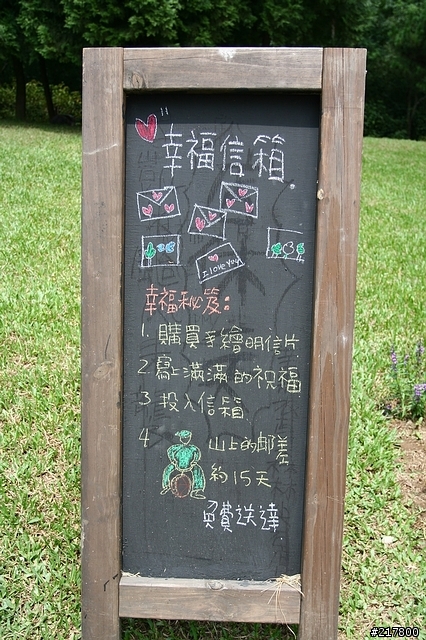 幸福信箱.
I love you
幸福秘笈:
1. 購買手繪明信片
2. 寫上滿滿的祝福
3 投入信箱.
4 山上的郵差
約15天
免費送達
#217800